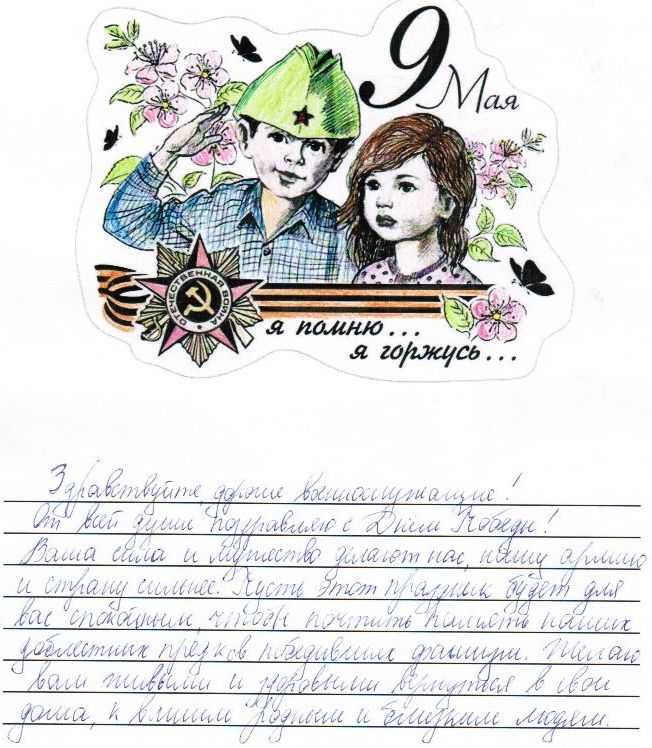 9 Мая
ОТЕЧЕСТВЕННАЯ ВОЙНА
я помню...
я горжусь...
Здравствуйте, дорогие военнослужащие!
От всей души поздравляю с Днём Победы!
Ваша сила и мужество делают нас, нашу армию
и страну сильнее. Пусть этот праздник будет для
вас спокойным, чтобы почтить память наших
доблестных предков победивших фашизм. Желаю
вам живыми и здоровыми вернуться в свои
дома, к вашим родным и близким людям.